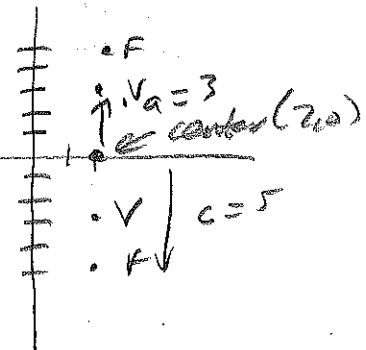 F
V a = 3
← center (2,0)
V c = 5
F